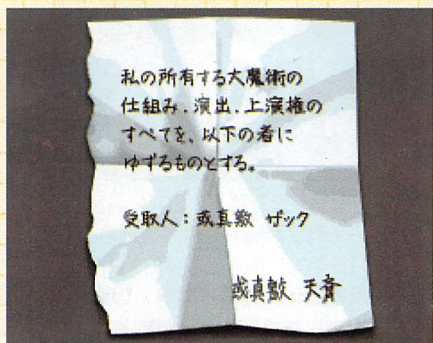 私の所有する大魔術の
仕組み、演出、上演権の
すべてを、以下の者に
ゆずるものとする。
受取人：或真敷 ザック
或真敷 天斎